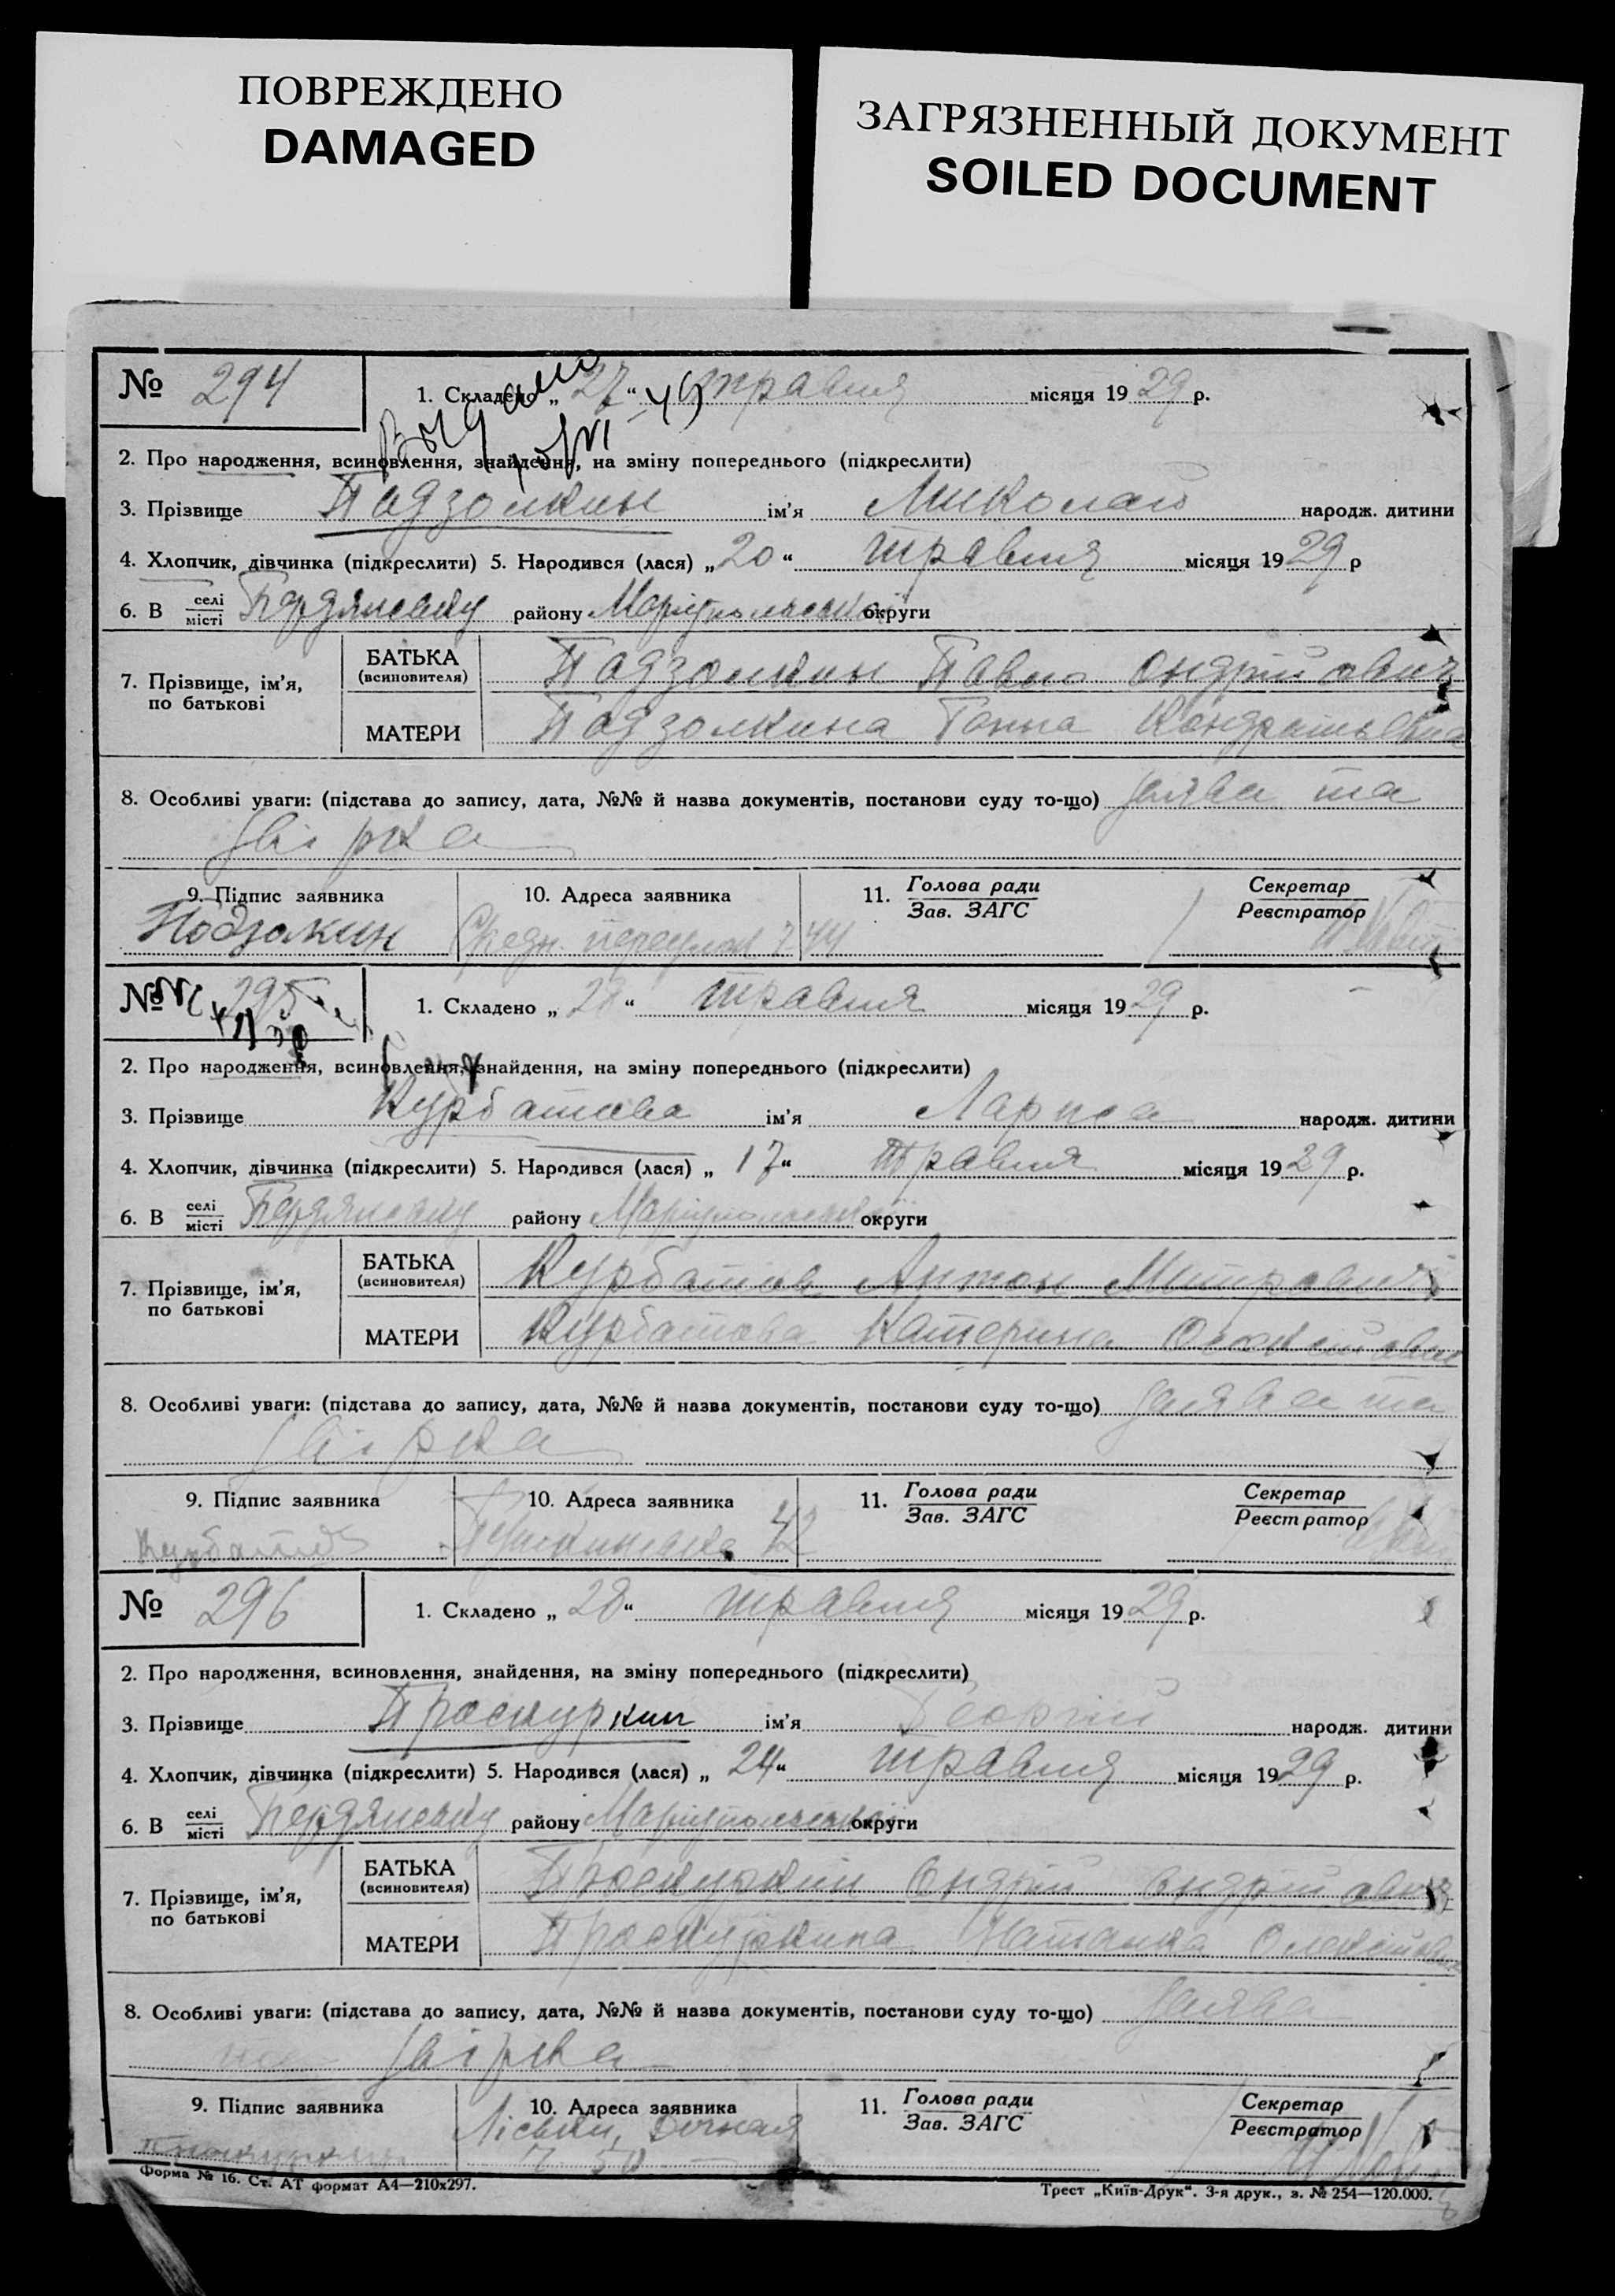 ПОВРЕЖДЕНО
DAMAGED
ЗАГРЯЗНЕННЫЙ ДОКУМЕНТ
SOILED DOCUMENT
№ 294
1. Складено „ 27 “ травня місяця 19 29 р.
Выдано
2. Про народження, всиновлення, знайдення, на зміну попереднього (підкреслити)
3. Прізвище Падзолкин ім’я Миколай народж. дитини
4. Хлопчик, дівчинка (підкреслити) 5. Народився (лася) „ 20 “ травня місяця 19 29 р
6. В селі місті Бердянську району Маріупольської округи
7. Прізвище, ім’я, по батькові
БАТЬКА (всиновителя) Падзолкин Павло Андрійович
МАТЕРИ Падзолкина Ганна Кондратьевна
8. Особливі уваги: (підстава до запису, дата, №№ й назва документів, постанови суду то-що) заява та
звірка
9. Підпис заявника 10. Адреса заявника 11. Голова ради Зав. ЗАГС Секретар Реєстратор
Подзолкин
№ 295
1. Складено „ 28 “ травня місяця 19 29 р.
2. Про народження, всиновлення, знайдення, на зміну попереднього (підкреслити)
3. Прізвище Курбатова ім’я Лариса народж. дитини
4. Хлопчик, дівчинка (підкреслити) 5. Народився (лася) „ 17 “ травня місяця 19 29 р.
6. В селі місті Бердянську району Маріупольської округи
7. Прізвище, ім’я, по батькові
БАТЬКА (всиновителя) Курбатов Антон Митрович
МАТЕРИ Курбатова Катерина
8. Особливі уваги: (підстава до запису, дата, №№ й назва документів, постанови суду то-що) заява та
звірка
9. Підпис заявника 10. Адреса заявника 11. Голова ради Зав. ЗАГС Секретар Реєстратор
Курбатов 42
№ 296
1. Складено „ 28 “ травня місяця 19 29 р.
2. Про народження, всиновлення, знайдення, на зміну попереднього (підкреслити)
3. Прізвище Проскуркин ім’я Георгій народж. дитини
4. Хлопчик, дівчинка (підкреслити) 5. Народився (лася) „ 24 “ травня місяця 19 29 р.
6. В селі місті Бердянську району Маріупольської округи
7. Прізвище, ім’я, по батькові
БАТЬКА (всиновителя) Проскуркин Андрій Андрійович
МАТЕРИ Проскуркина Наталка
8. Особливі уваги: (підстава до запису, дата, №№ й назва документів, постанови суду то-що) заява
та звірка
9. Підпис заявника 10. Адреса заявника 11. Голова ради Зав. ЗАГС Секретар Реєстратор
Форма № 16. Ст. АТ формат А4—210x297.
Трест „Київ-Друк“. 3-я друк., з. № 254—120.000.